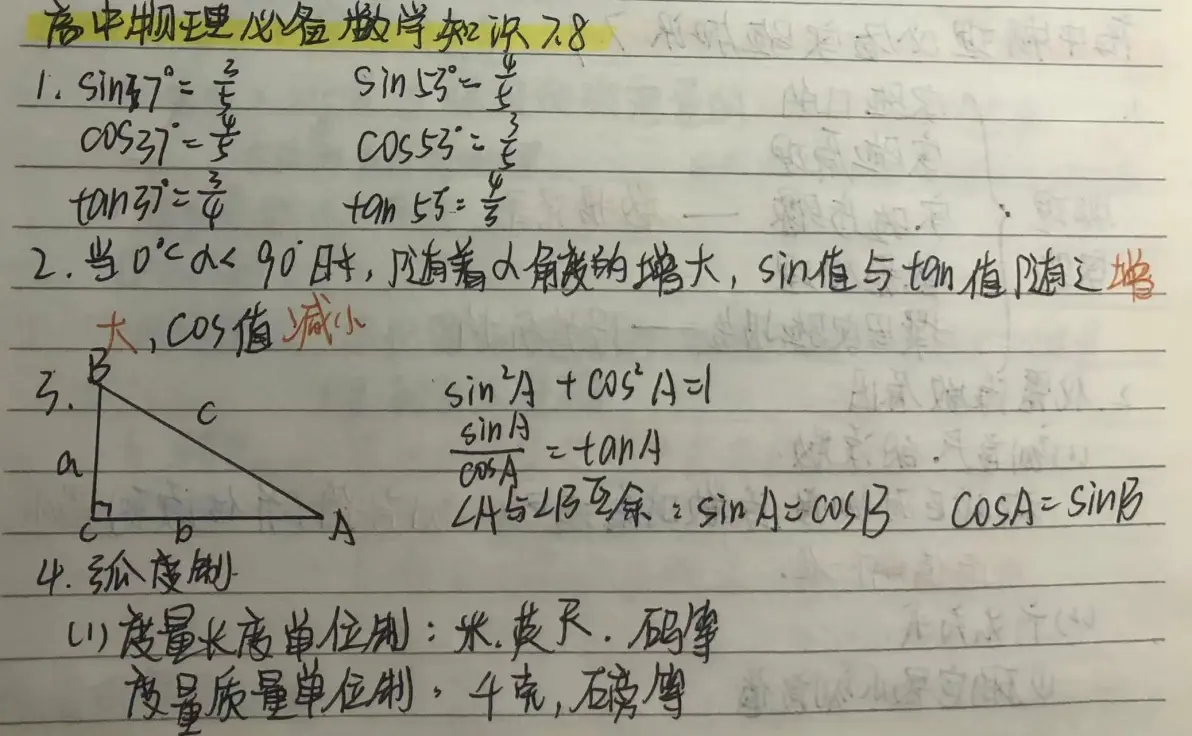 高中物理必备数学知识 7.8
1. sin37°=3/5 sin53°=4/5
cos37°=4/5 cos53°=3/5
tan37°=3/4 tan53°=4/3
2. 当0°<α<90°时，随着α角度的增大，sin值与tan值随之增
大，cos值减小
3. B c a C b A
sin²A+cos²A=1
sinA/cosA=tanA
∠A与∠B互余：sinA=cosB cosA=sinB
4. 弧度制
(1) 度量长度单位制：米.英尺.码等
度量质量单位制：千克，磅等